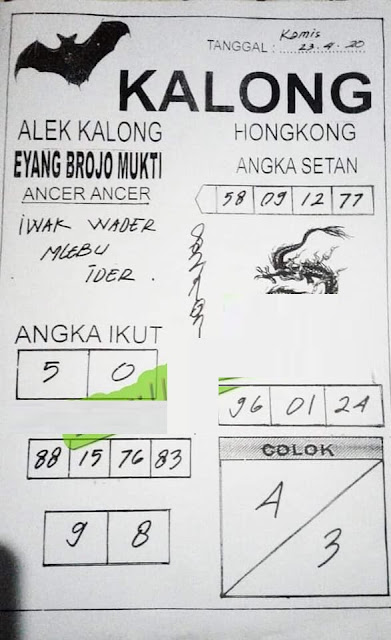 TANGGAL : Kamis 23.4.20
KALONG
ALEK KALONG
EYANG BROJO MUKTI
ANCER ANCER
IWAK WADER
MLEBU
IDER .
HONGKONG
ANGKA SETAN
58 09 12 77
ANGKA IKUT
5 0
96 01 24
88 15 76 83
9 8
COLOK
4
3